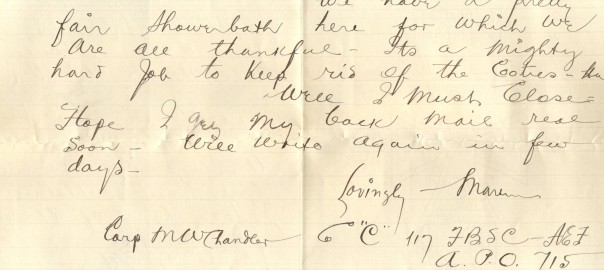 We have a pretty
fair Showerbath here for which we
Are all thankful - Its a Mighty
hard Job to Keep rid of the Coties -
Well I Must Close -
Hope I get My back Mail real
Soon - Will write again in few
days -
Lovingly -
Corp MW Chandler Co "C" 117 FBSC - AEF
A. P. O. 715